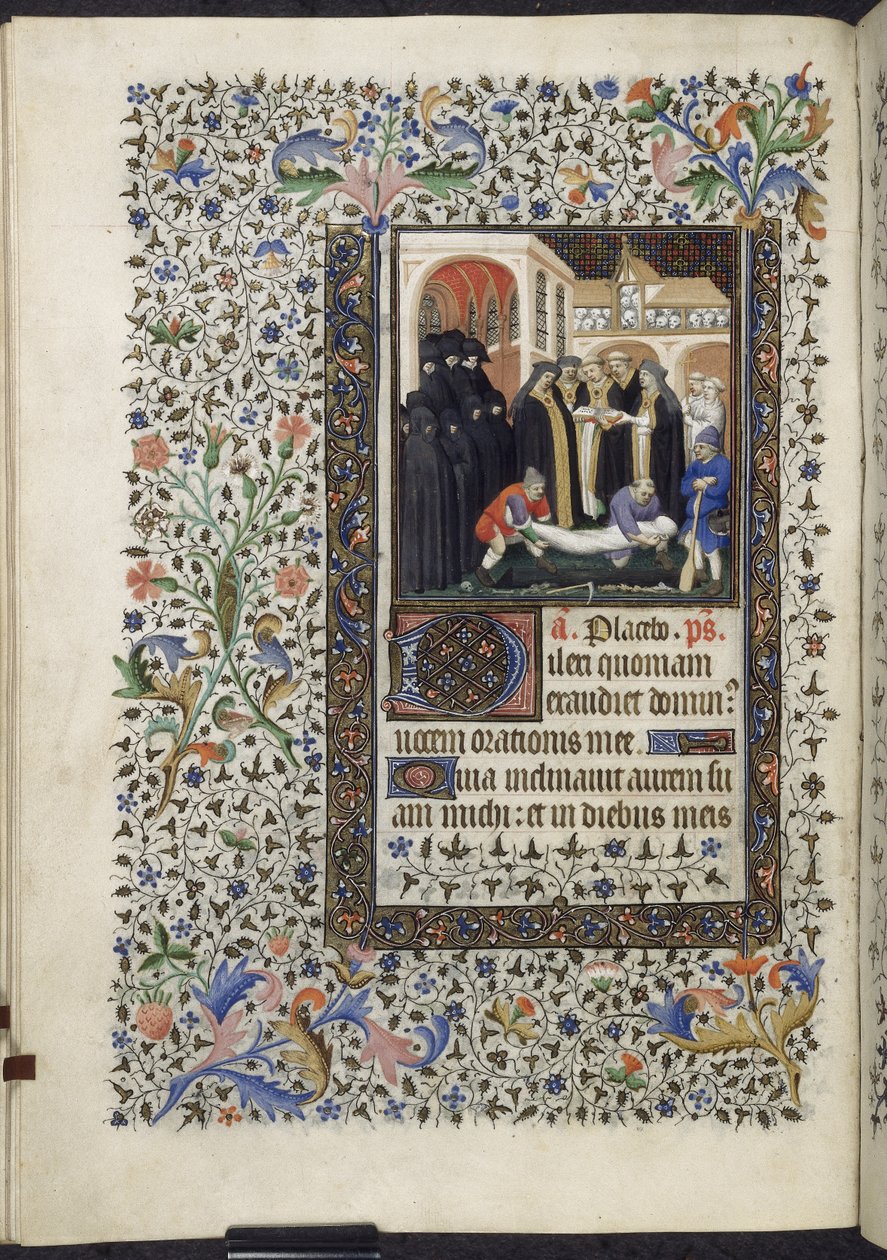 añ. Placebo. ps̃.
Dilexi quoniam
exaudiet domin9
uocem orationis mee.
Quia inclinauit aurem su
am michi: et in diebus meis